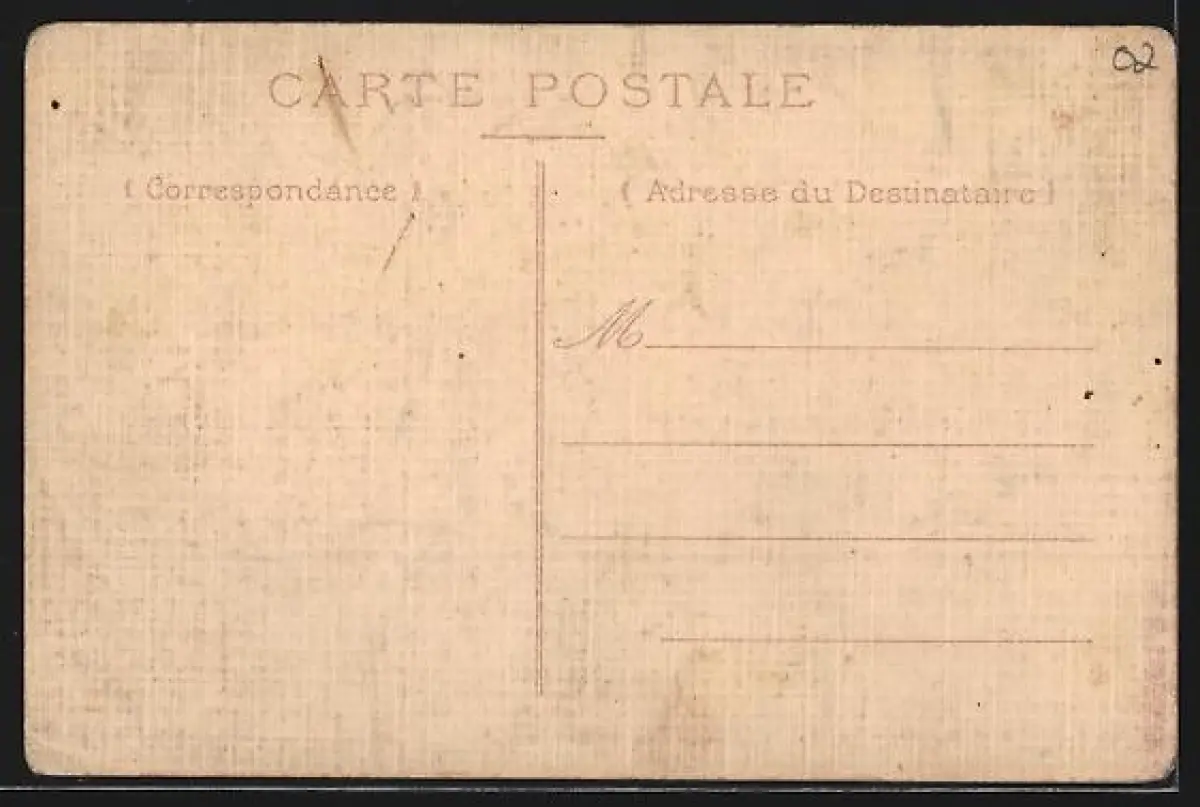 02
CARTE POSTALE
( Correspondance )
( Adresse du Destinataire )
M